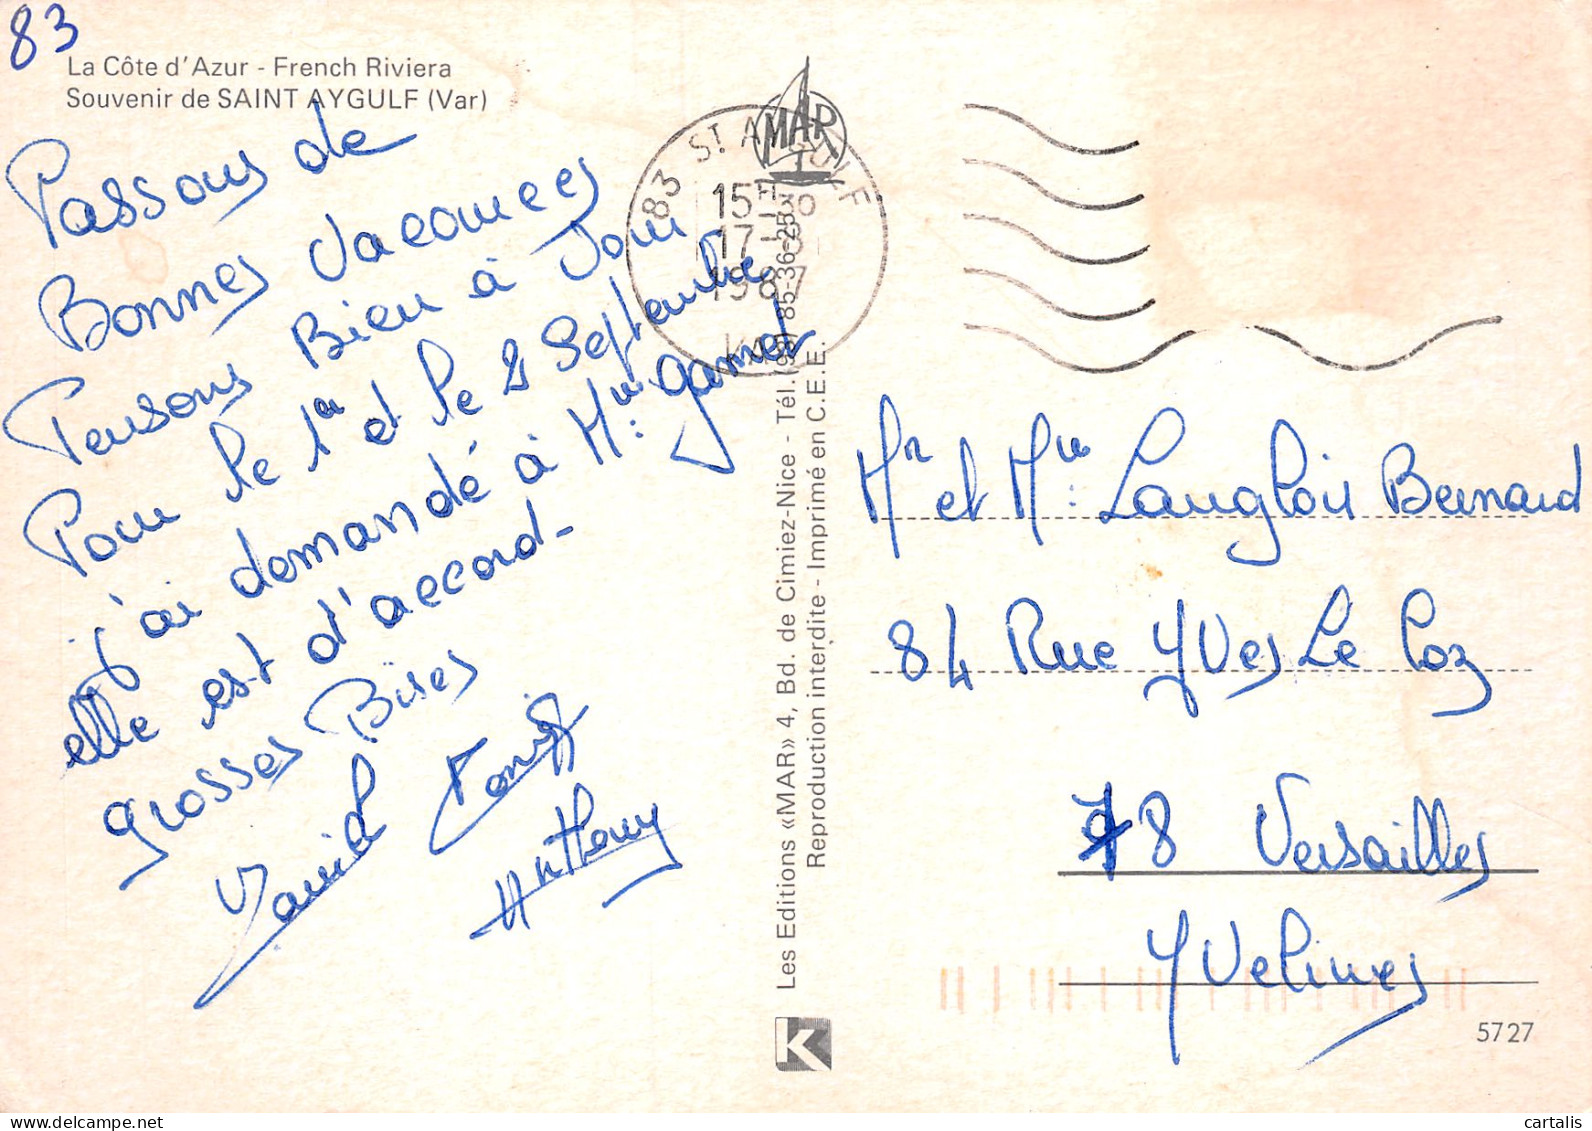 83
La Côte d'Azur - French Riviera
Souvenir de SAINT AYGULF (Var)
Passons de
Bonnes Vacances
Pensons Bien à
Pour le 1er et le 2 Septembre
j'ai demandé à Mme: Gamet
elle est d'accord-
grosses Bises
Anthony
MAR
83 ST AYGULF
15H
17-8
1987
Les Editions «MAR» 4, Bd. de Cimiez-Nice - Tél.
Reproduction interdite - Imprimé en C.E.E.
Mr et Mme: Langlois Bernard
84 Rue Yves Le Coz
78 Versailles
Yvelines
K
5727
cartalis